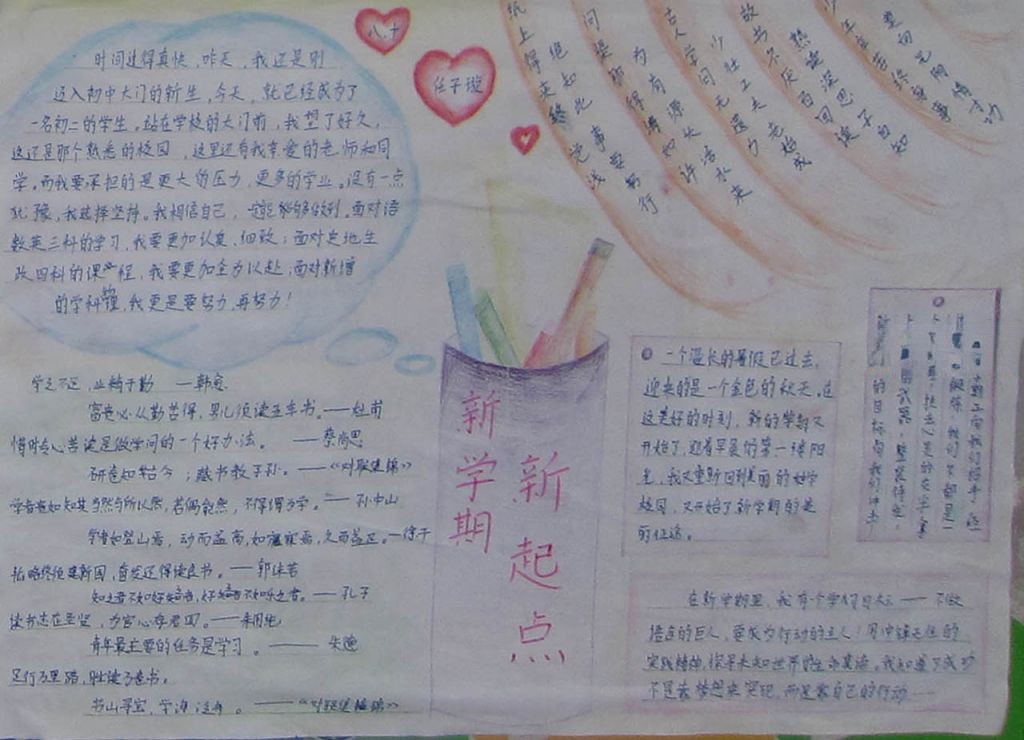 八.十
任子璇
时间过得真快，昨天，我还是刚
迈入初中大门的新生，今天，就已经成为了
一名初二的学生。站在学校的大门前，我望了好久，
这还是那个熟悉的校园，这里还有我亲爱的老师和同
学，而我要承担的是更大的压力，更多的学业。没有一点
犹豫，我选择坚持。我相信自己，一定能够做到。面对语
数英三科的学习，我要更加认真、细致；面对史地生
政四科的课程，我要更加全力以赴；面对新增
的学科物理，我更是要努力，再努力！
纸上得来终觉浅
绝知此事要躬行
问渠那得清如许
为有源头活水来
古人学问无遗力
少壮工夫老始成
故书不厌百回读
熟读深思子自知
新学期
新起点
学之不，业精于勤 —韩愈
富贵必从勤苦得，男儿须读五车书。—杜甫
惜时专心苦读是做学问的一个好办法。 ——蔡尚思
研卷知古今；藏书教子孙。——《对联集锦》
学者贵知其当然与所以然，若偶能然，不得谓为学。——孙中山
学者如登山焉，动而益高，如寤寐焉，久而益足。—徐干
拓略终使建新国，奋发还得读良书。——郭沫若
知之者不如好之者，好之者不如乐之者。——孔子
读书志在圣贤，为官心存君国。——朱用纯
青年最主要的任务是学习。——— 朱德
足行万里路，胜读万卷书。
书山寻宝，学海泛舟。——《对联集锦》
一个漫长的暑假已过去，
迎来的是一个金色的秋天。在
这美好的时刻，新的学期又
开始了，迎着早晨的第一缕阳
光，我又重新回到美丽的
校园，又开始了新学期的
的征途。
的目标向我们冲击
在新学期里，我有个学习目标——不做
语言的巨人，要成为行动的主人！用
实践精神，探寻未知世界的
不是靠梦想来实现，而是靠自己的行动——